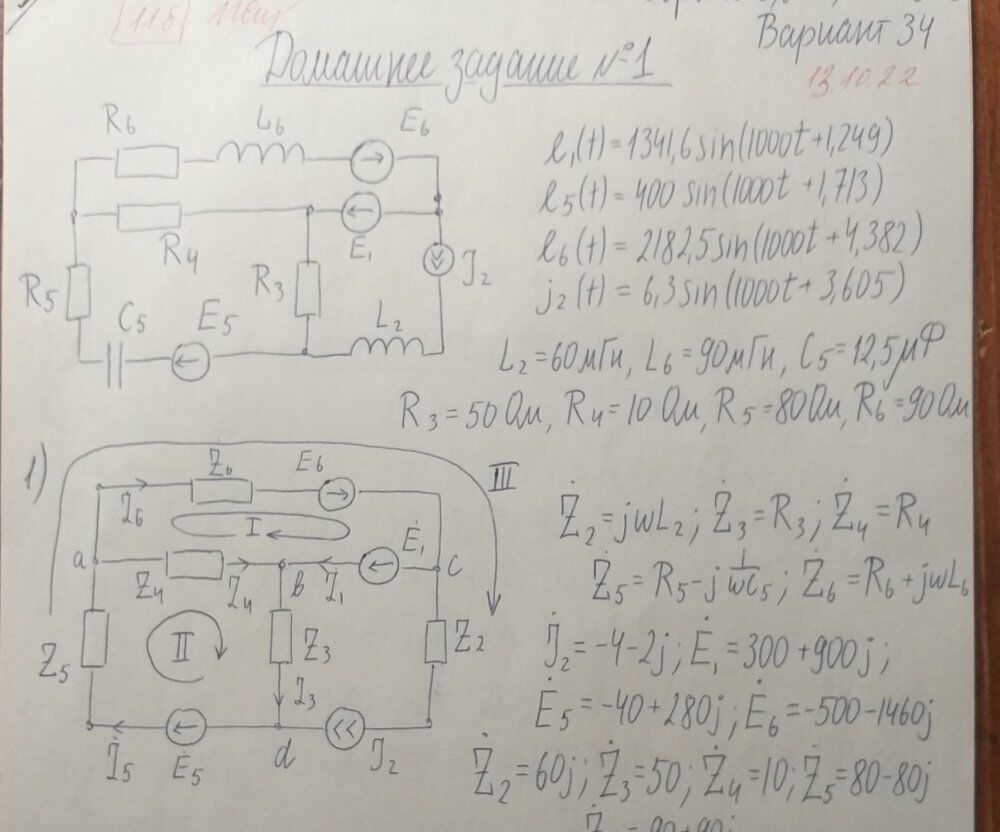 Вариант 34
13.10.22
Домашнее задание №1
R6 L6 E6
R4 E1 J2
R5 C5 E5 R3 L2
e1(t)=1341,6 sin(1000t+1,249)
e5(t)=400 sin(1000t+1,713)
e6(t)=2182,5 sin(1000t+4,382)
j2(t)=6,3 sin(1000t+3,605)
L2=60мГн, L6=90мГн, C5=12,5μФ
R3=50 Ом, R4=10 Ом, R5=80 Ом, R6=90 Ом
1)
Z6 E6 III
İ6 I
a Z4 I4 b I1 Ė1 c
Z5 II Z3 Z2
I3
İ5 Ė5 d J2
Ż2=jwL2; Ż3=R3; Ż4=R4
Ż5=R5-j 1/wC5; Ż6=R6+jwL6
J̇2=-4-2j; Ė1=300+900j;
Ė5=-40+280j; Ė6=-500-1460j
Ż2=60j; Ż3=50; Ż4=10; Ż5=80-80j